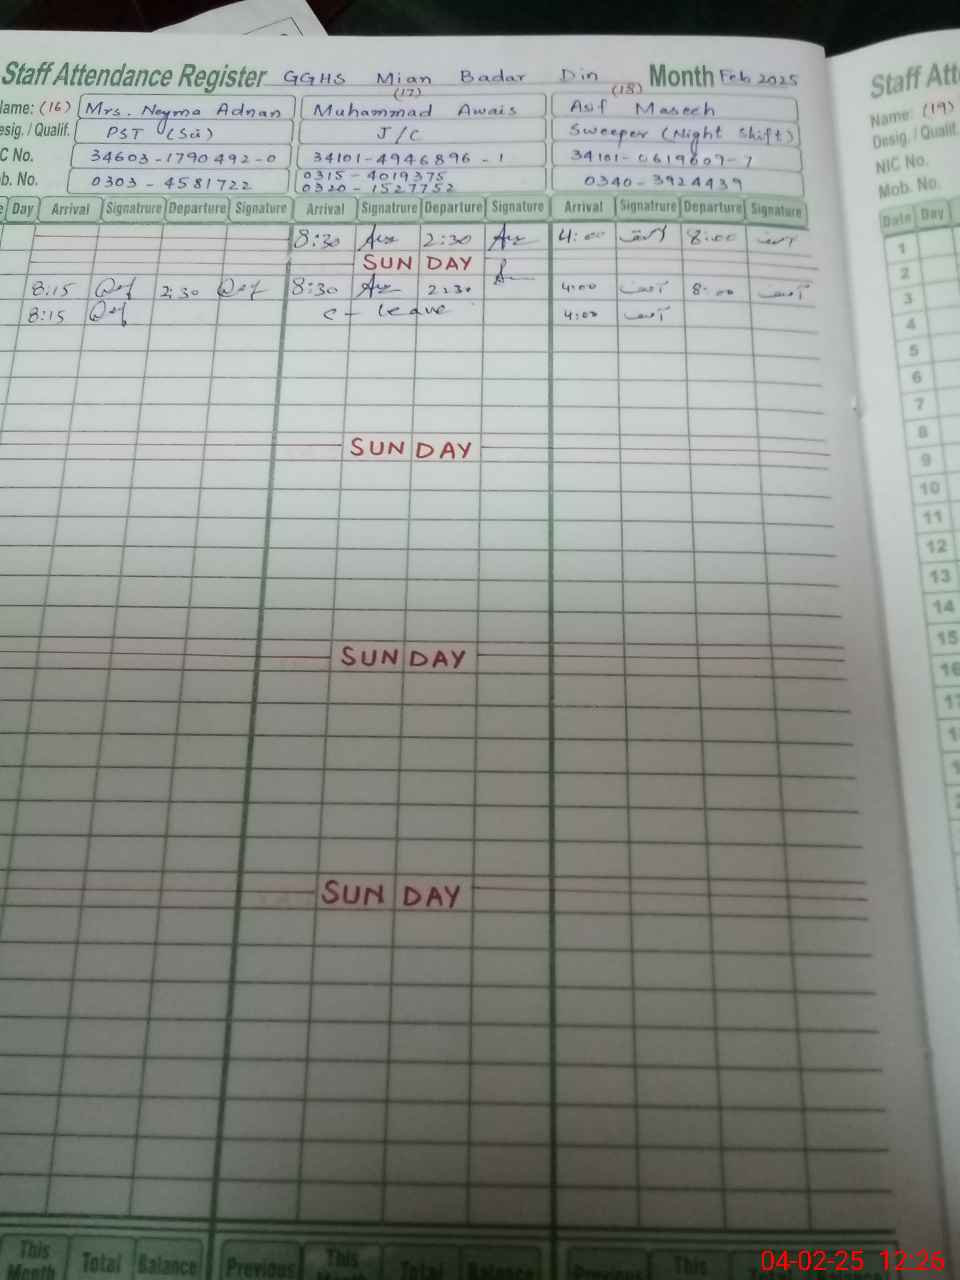 Staff Attendance Register GGHS Mian Badar Din Month Feb 2025
Name: (16) Mrs. Neyma Adnan (17) Muhammad Awais (18) Asif Maseeh
Desig. / Qualif. PST (Sci) J/C Sweeper (Night Shift)
NIC No. 34603-1790492-0 34101-4946896-1 34101-0619607-7
Mob. No. 0303-4581722 0315-4019375 0340-3924439
0320-1527752
Day Arrival Signatrure Departure Signature Arrival Signatrure Departure Signature Arrival Signatrure Departure Signature
8:30 2:30 4:00 آصف 8:00 آصف
SUNDAY
8:15 2:30 8:30 2:30 4:00 آصف 8:00 آصف
8:15 c - leave 4:00 آصف
SUNDAY
SUNDAY
SUNDAY
This Month Total Balance Previous This Month Total Balance Previous This
Staff Att
Name: (19)
Desig. / Qualif.
NIC No.
Mob. No.
Date Day
1
2
3
4
5
6
7
8
9
10
11
12
13
14
15
16
04-02-25 12:26